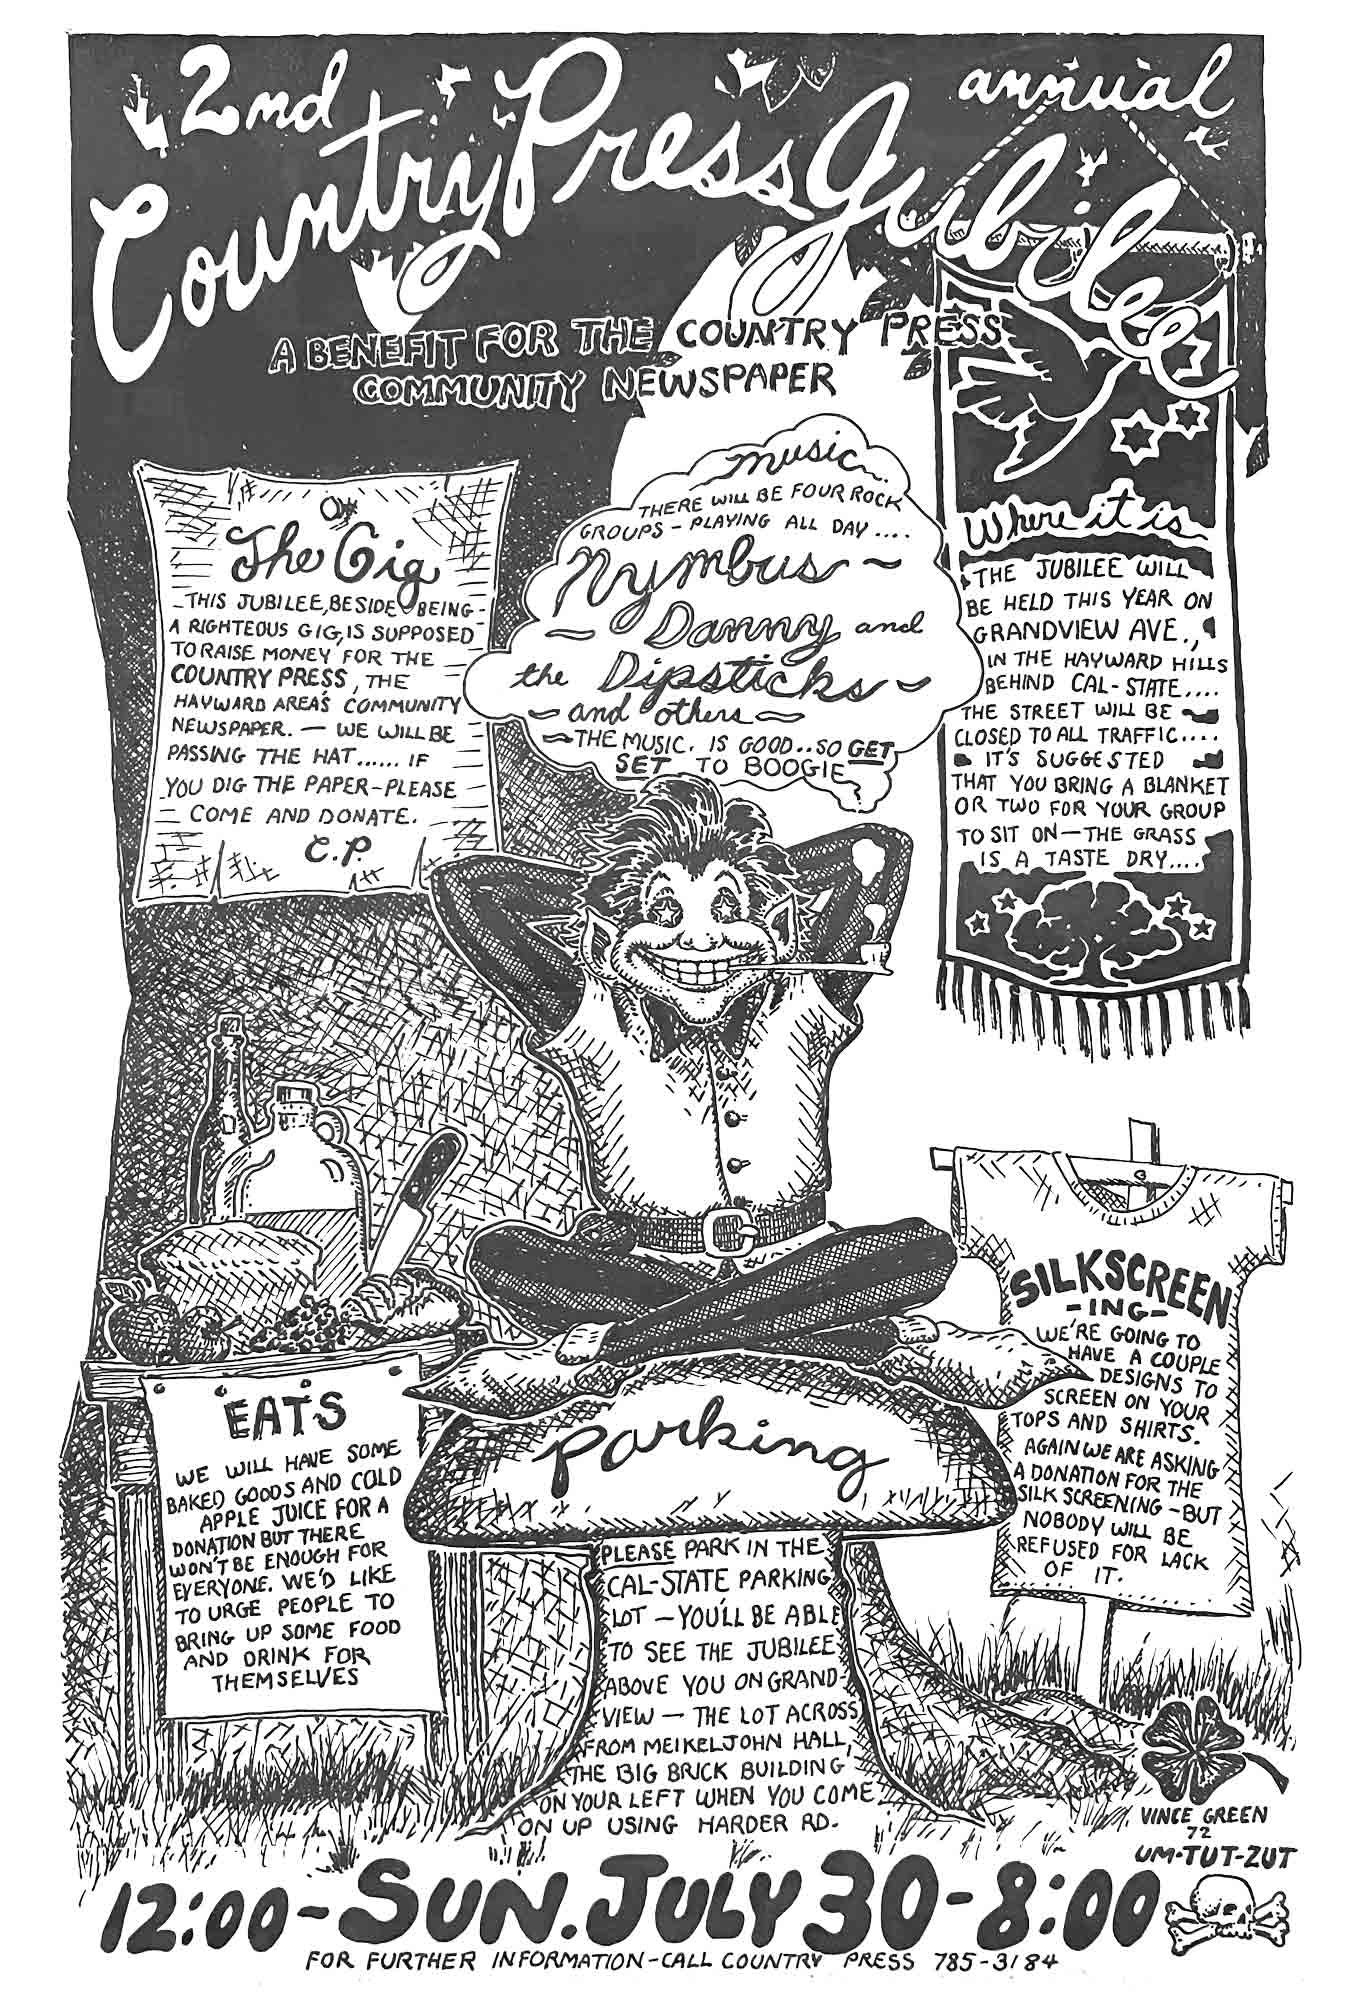 2nd annual
Country Press Jubilee
A BENEFIT FOR THE COUNTRY PRESS
COMMUNITY NEWSPAPER
The Gig
THIS JUBILEE, BESIDE BEING
A RIGHTEOUS GIG, IS SUPPOSED
TO RAISE MONEY FOR THE
COUNTRY PRESS, THE
HAYWARD AREA'S COMMUNITY
NEWSPAPER. — WE WILL BE
PASSING THE HAT...... IF
YOU DIG THE PAPER-PLEASE
COME AND DONATE.
C.P.
music...
THERE WILL BE FOUR ROCK
GROUPS - PLAYING ALL DAY ....
Nymbus ~
~ Danny and
the Dipsticks ~
~ and others ~
~THE MUSIC. IS GOOD..SO GET
SET TO BOOGIE
Where it is
THE JUBILEE WILL
BE HELD THIS YEAR ON
GRANDVIEW AVE.,
IN THE HAYWARD HILLS
BEHIND CAL-STATE....
THE STREET WILL BE
CLOSED TO ALL TRAFFIC....
IT'S SUGGESTED
THAT YOU BRING A BLANKET
OR TWO FOR YOUR GROUP
TO SIT ON — THE GRASS
IS A TASTE DRY....
EATS
WE WILL HAVE SOME
BAKED GOODS AND COLD
APPLE JUICE FOR A
DONATION BUT THERE
WON'T BE ENOUGH FOR
EVERYONE. WE'D LIKE
TO URGE PEOPLE TO
BRING UP SOME FOOD
AND DRINK FOR
THEMSELVES
Parking
PLEASE PARK IN THE
CAL-STATE PARKING
LOT — YOU'LL BE ABLE
TO SEE THE JUBILEE
ABOVE YOU ON GRAND-
VIEW — THE LOT ACROSS
FROM MEIKELJOHN HALL,
THE BIG BRICK BUILDING
ON YOUR LEFT WHEN YOU COME
ON UP USING HARDER RD.
SILKSCREEN
-ING-
WE'RE GOING TO
HAVE A COUPLE
DESIGNS TO
SCREEN ON YOUR
TOPS AND SHIRTS.
AGAIN WE ARE ASKING
A DONATION FOR THE
SILK SCREENING - BUT
NOBODY WILL BE
REFUSED FOR LACK
OF IT.
VINCE GREEN
72
UM-TUT-ZUT
12:00 - SUN. JULY 30 - 8:00
FOR FURTHER INFORMATION-CALL COUNTRY PRESS 785-3184